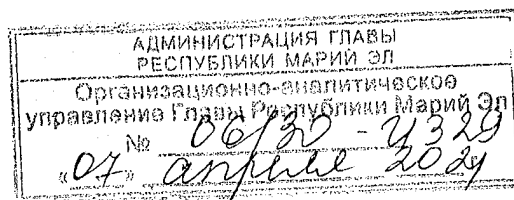 АДМИНИСТРАЦИЯ ГЛАВЫ
РЕСПУБЛИКИ МАРИЙ ЭЛ
Организационно-аналитическое
управление Главы Республики Марий Эл
№ 06/30 -
«07» апреля 2021